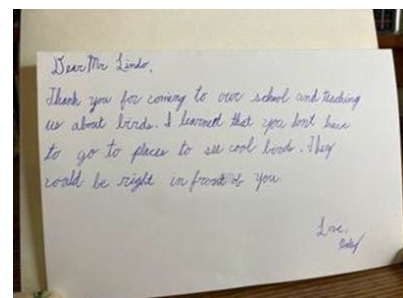 Dear Mr Lindo,
Thank you for coming to our school and teaching
us about birds. I learned that you dont have
to go to places to see cool birds. They
could be right in front of you.
Love,